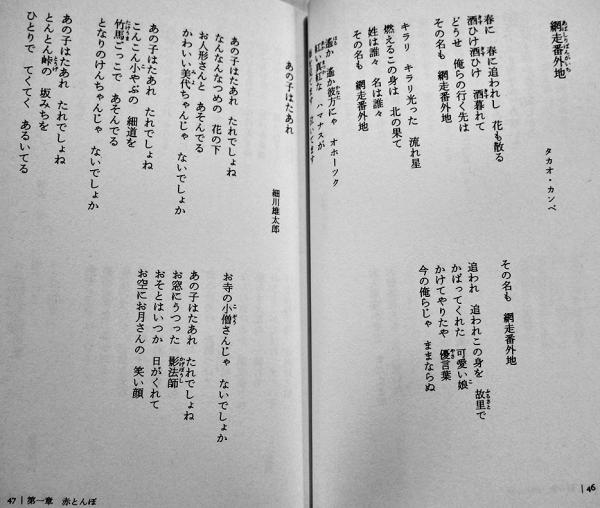 網走番外地
タカオ・カンベ
春に 春に追われし 花も散る
酒ひけ酒ひけ 酒暮れて
どうせ 俺らの行く先は
その名も 網走番外地
キラリ キラリ光った 流れ星
燃えるこの身は 北の果て
姓は誰々 名は誰々
その名も 網走番外地
遥か 遥か彼方にゃ オホーツク
紅い真紅な ハマナスが
その名も 網走番外地
追われ 追われこの身を 故里で
かばってくれた 可愛い娘
かけてやりたや 優言葉
今の俺らじゃ ままならぬ
46
あの子はたあれ
細川雄太郎
あの子はたあれ たれでしょね
なんなんなつめの 花の下
お人形さんと あそんでる
かわいい美代ちゃんじゃ ないでしょか
あの子はたあれ たれでしょね
こんこん小やぶの 細道を
竹馬ごっこで あそんでる
となりのけんちゃんじゃ ないでしょか
あの子はたあれ たれでしょね
とんとん峠の 坂みちを
ひとりで てくてく あるいてる
お寺の小僧さんじゃ ないでしょか
あの子はたあれ たれでしょね
お窓にうつった 影法師
おそとはいつか 日がくれて
お空にお月さんの 笑い顔
47 | 第一章 赤とんぼ